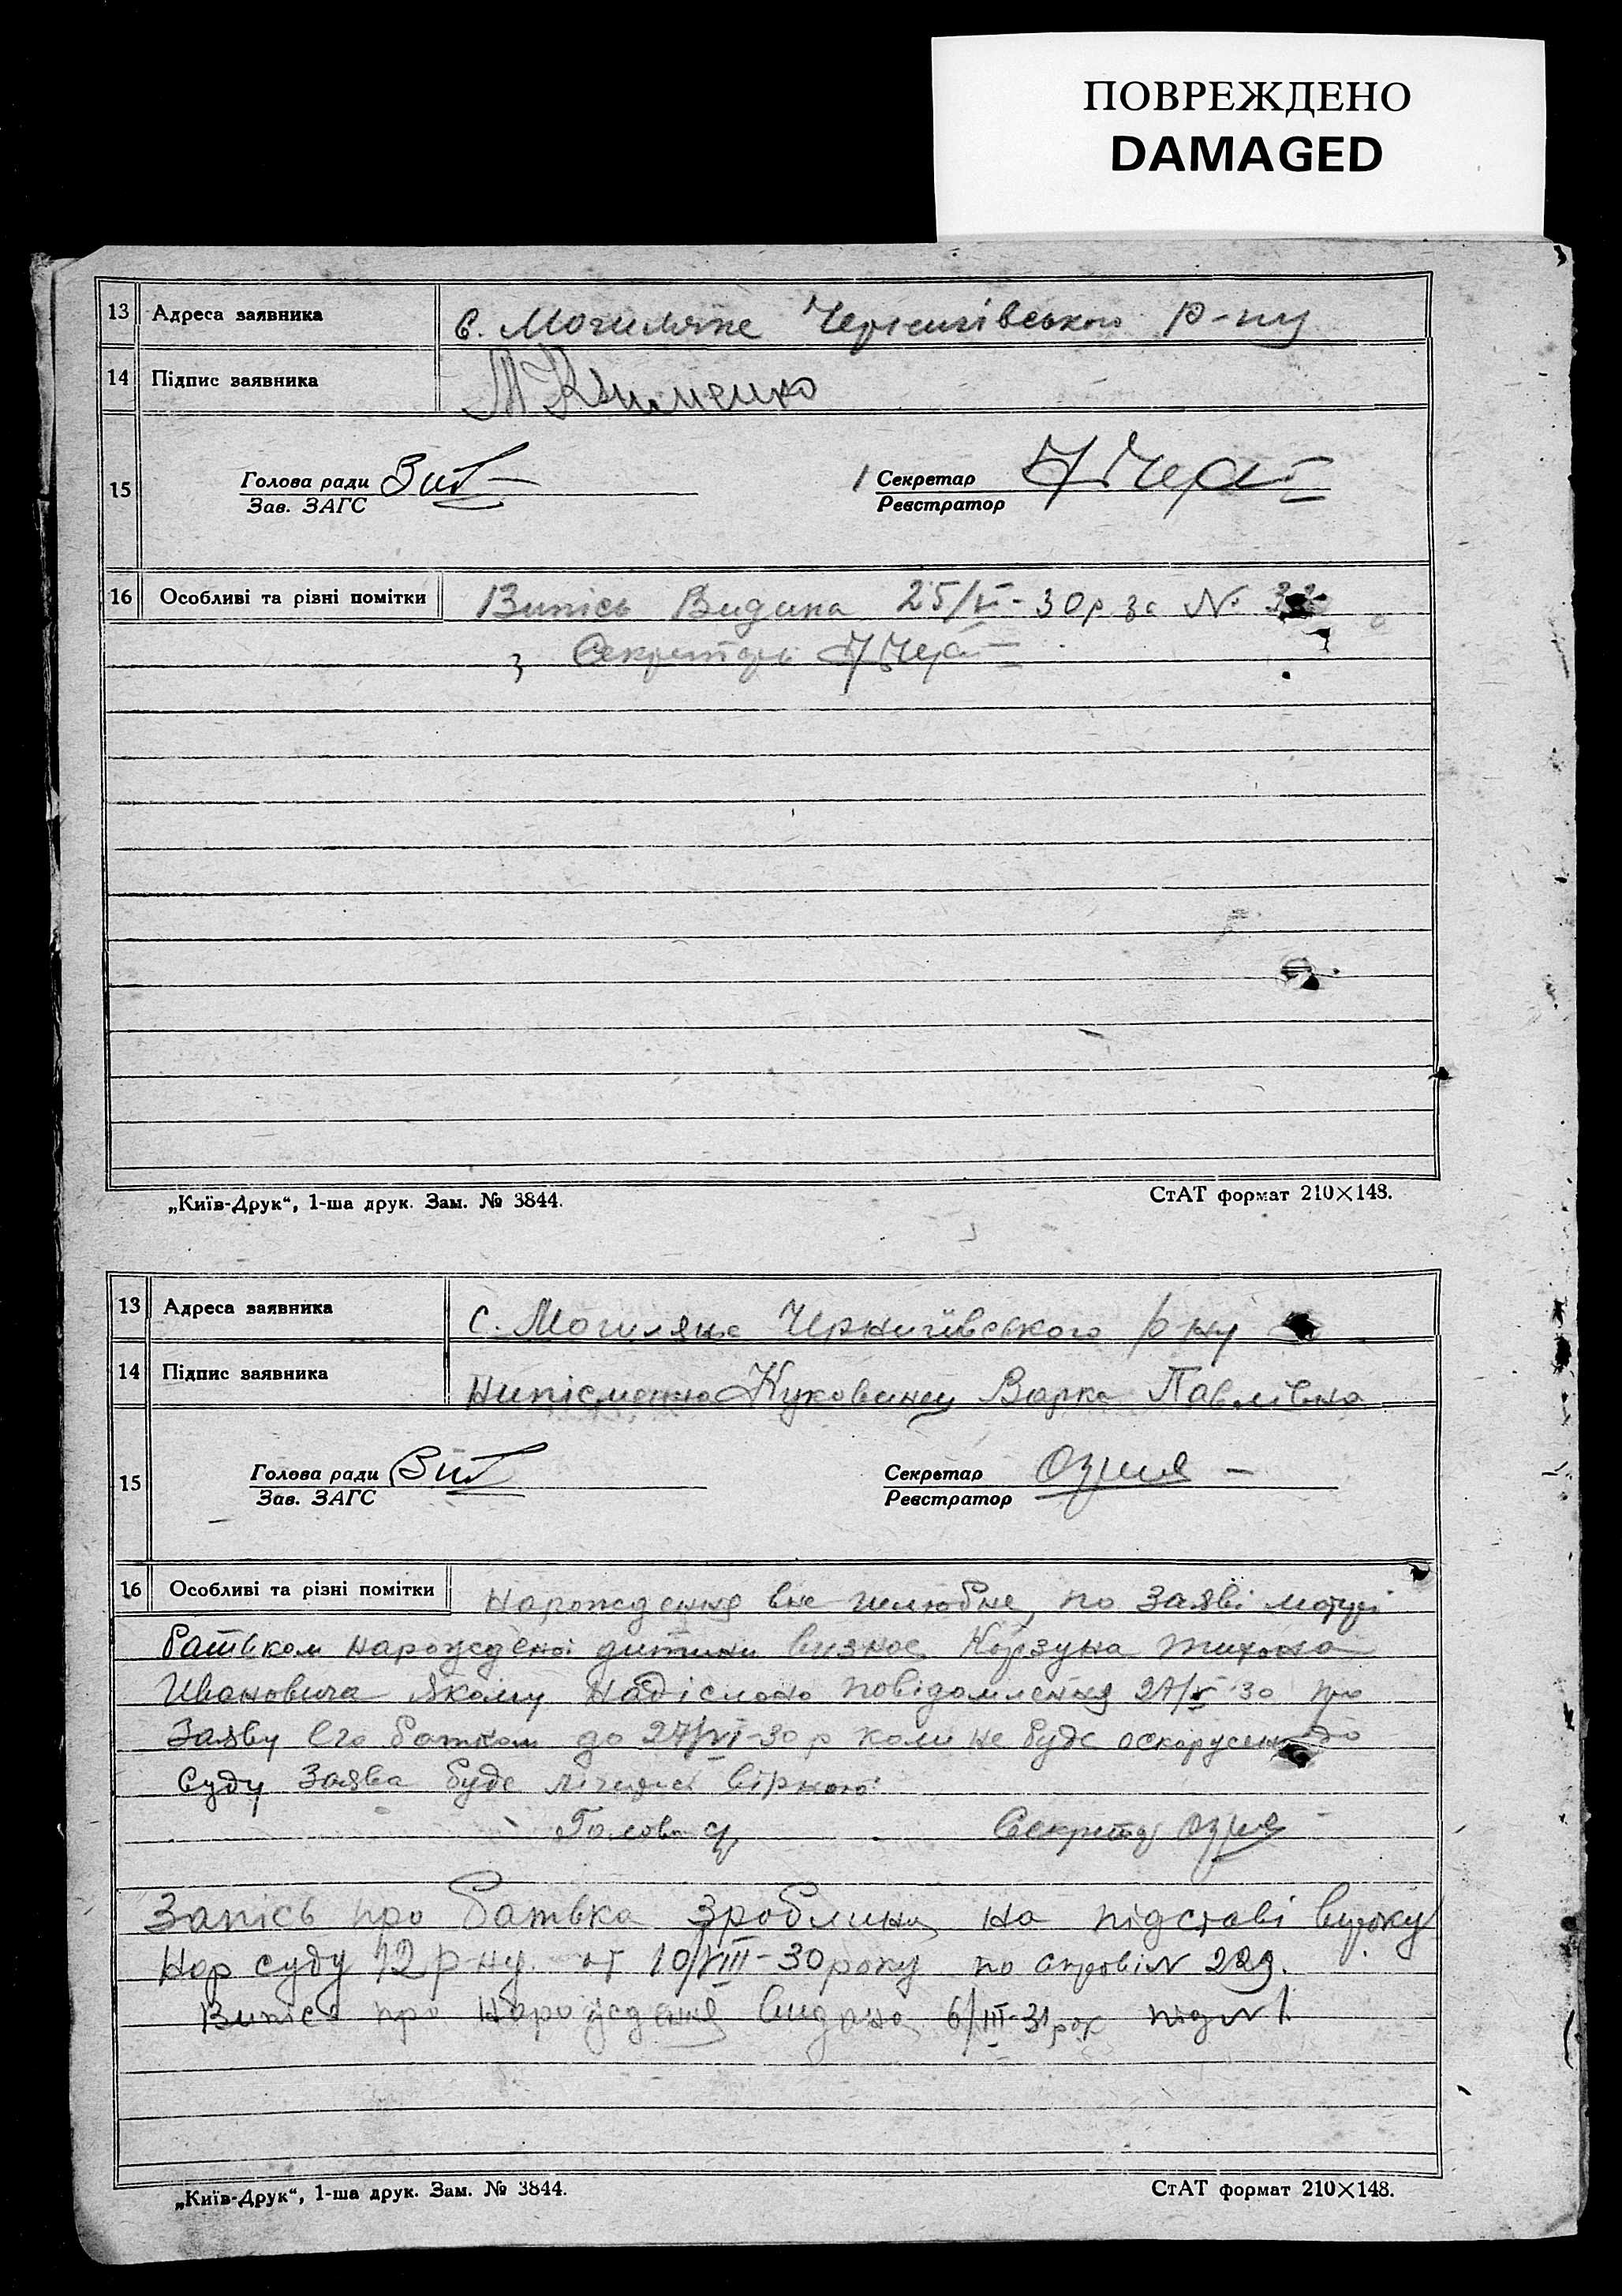 ПОВРЕЖДЕНО
DAMAGED
13 Адреса заявника с. Могиляне Чернигівського р-ну
14 Підпис заявника М Клименко
15 Голова ради
Зав. ЗАГС
Секретар
Реєстратор
16 Особливі та різні помітки Випісь Видана 25/VI-30 р за №
Секретарь
„Київ-Друк“, 1-ша друк. Зам. № 3844. СтАТ формат 210×148.
13 Адреса заявника с. Могиляне Чернигівського р-ну
14 Підпис заявника Нипісменна Варка Павлівна
15 Голова ради
Зав. ЗАГС
Секретар
Реєстратор
16 Особливі та різні помітки Нарождення вне шлюбне, по заяві матері
батьком народженої дитини визнає Корзуна Тихона
Ивановича якому надіслоно повідомлення 27/V-30 про
Заяву його батком до 27/VI-30 р коли не буде до
Суду Заява буде лічитись вірною
Голова Секретар
Запісь про батька зроблина на підставі вироку
Нар суду 12 р-ну от 10/VIII-30 року по справі № 229.
Випісь про Народженя видана 6/III-31 рок під № 1.
„Київ-Друк“, 1-ша друк. Зам. № 3844. СтАТ формат 210×148.